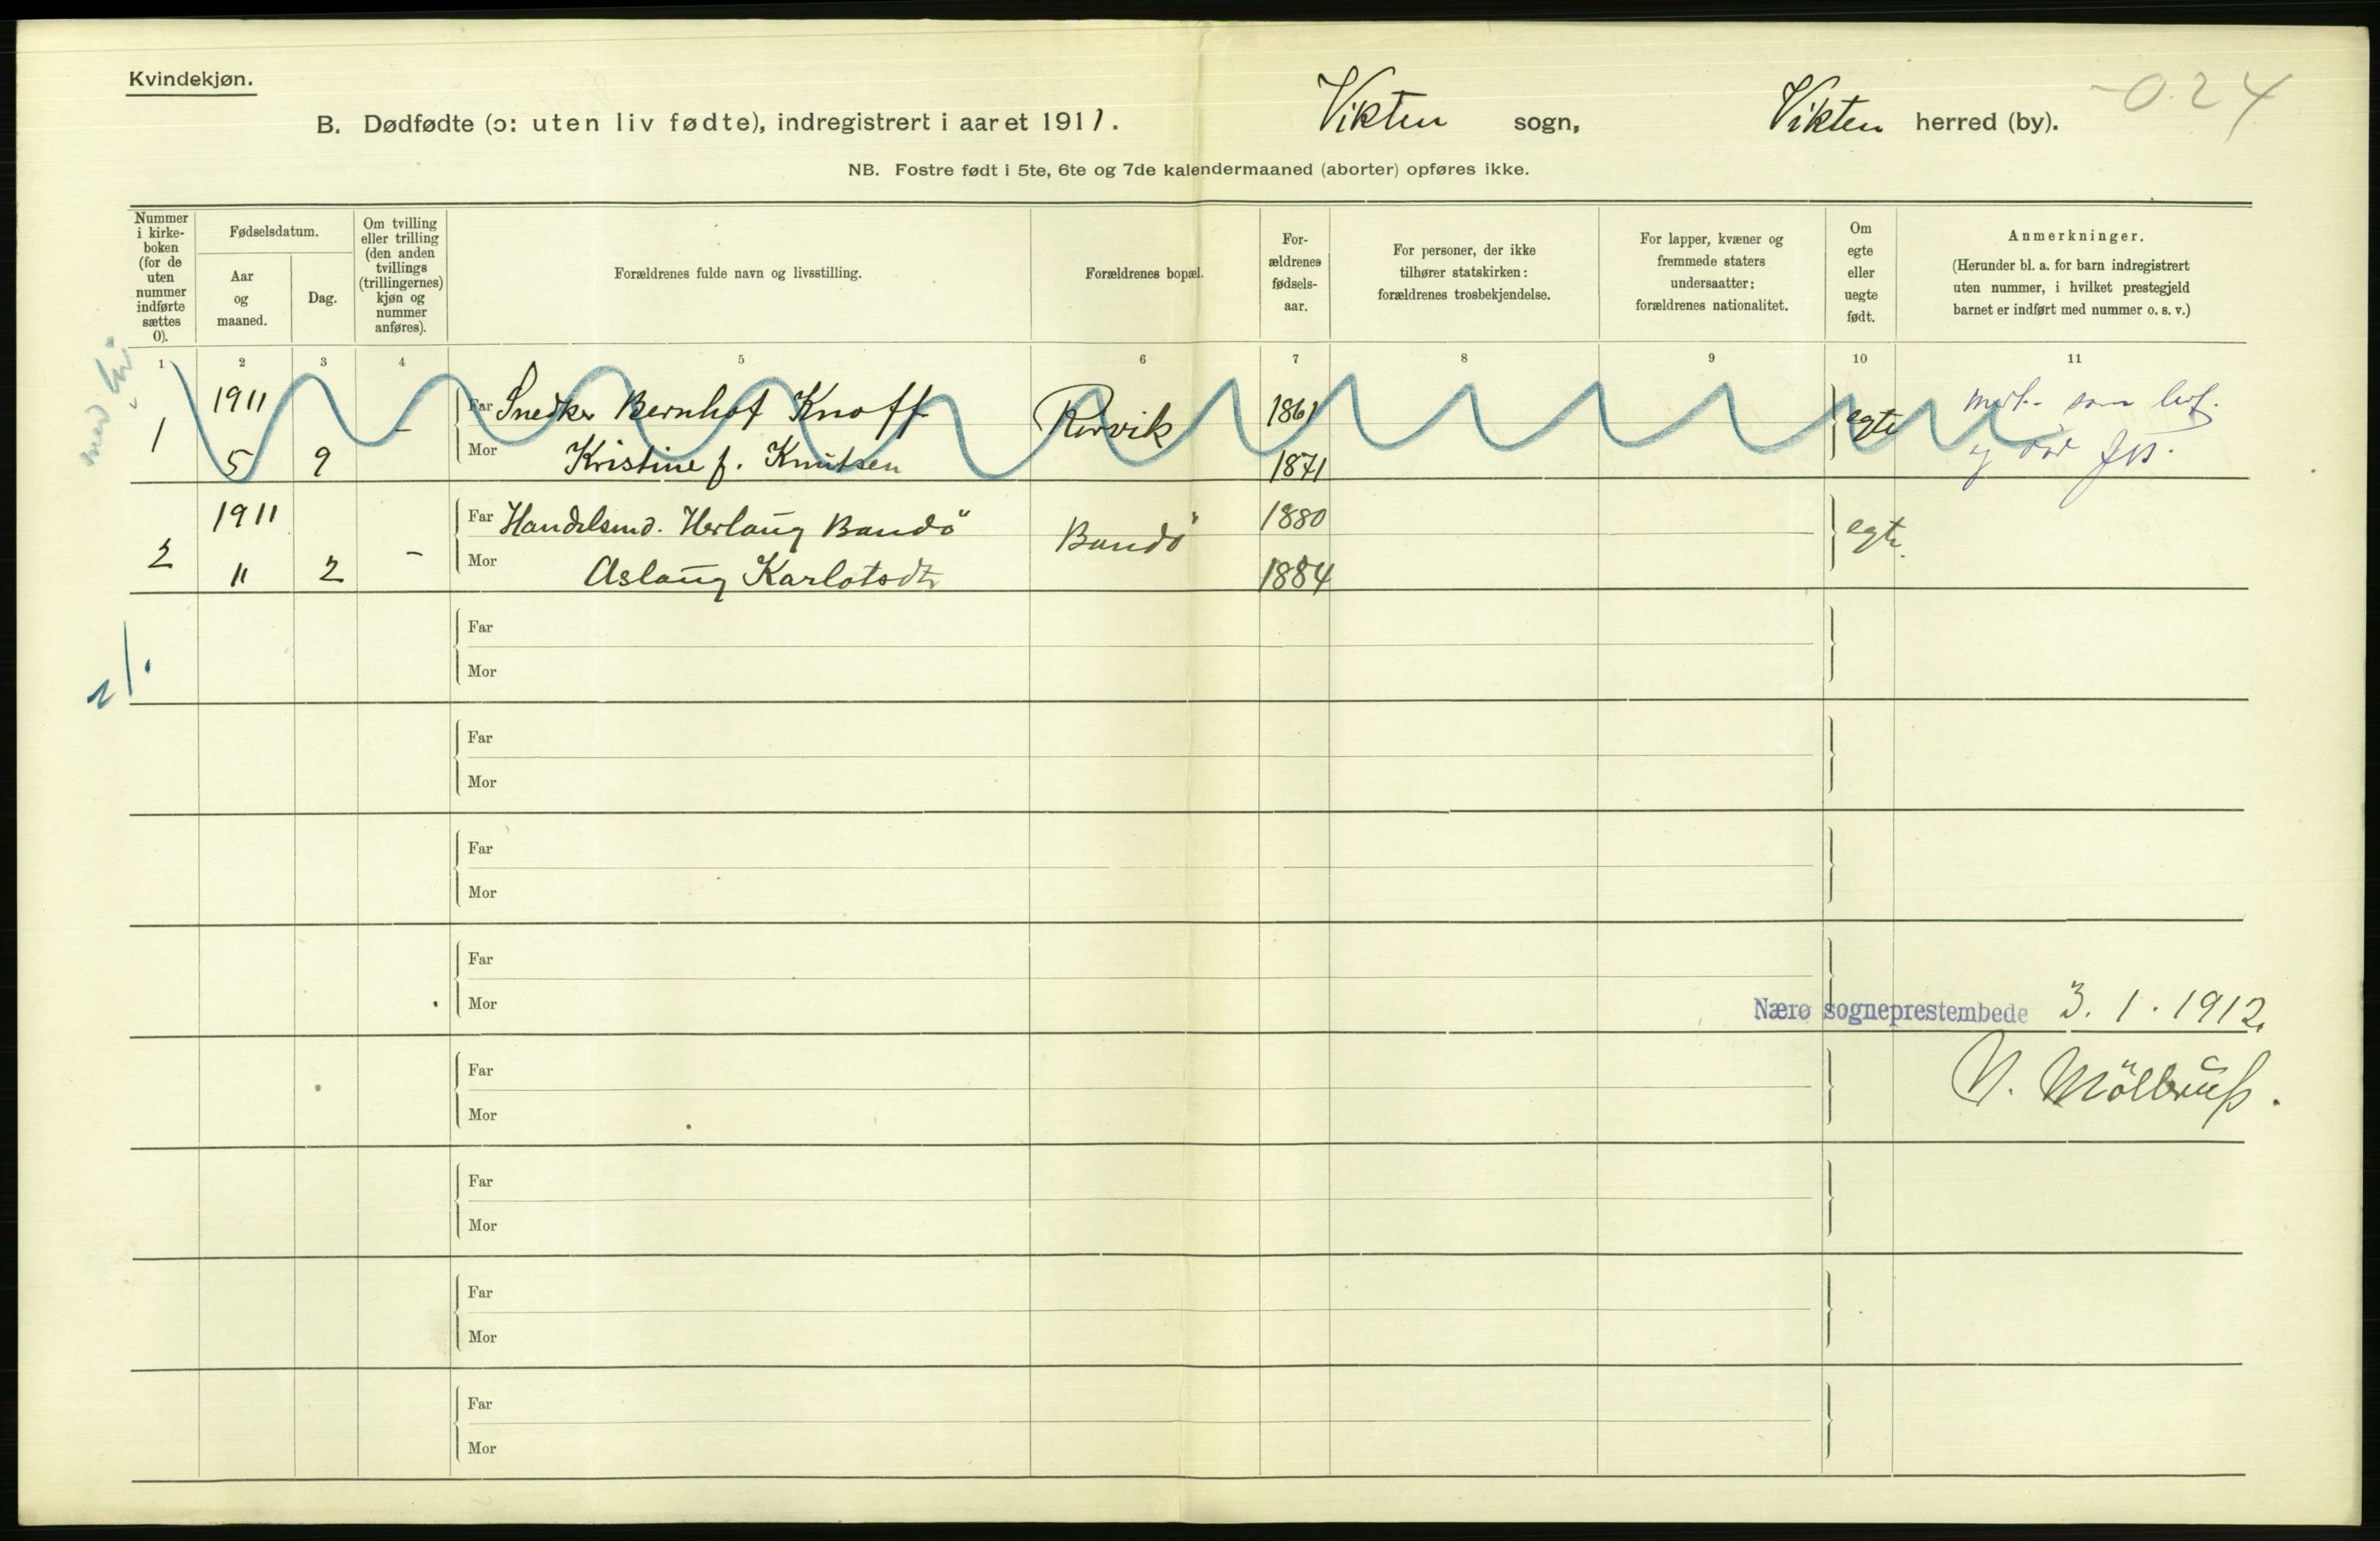 Kvindekjøn.
-024
B. Dødfødte (ɔ: uten liv fødte), indregistrert i aaret 1911. Vikten sogn, Vikten herred (by).
NB. Fostre født i 5te, 6te og 7de kalendermaaned (aborter) opføres ikke.
Nummer
i kirke-
boken
(for de
uten
nummer
indførte
sættes
0).
Fødselsdatum.
Aar
og
maaned.
Dag.
Om tvilling
eller trilling
(den anden
tvillings
(trillingernes)
kjøn og
nummer
anføres).
Forældrenes fulde navn og livsstilling.
Forældrenes bopæl.
For-
ældrenes
fødsels-
aar.
For personer, der ikke
tilhører statskirken:
forældrenes trosbekjendelse.
For lapper, kvæner og
fremmede staters
undersaatter:
forældrenes nationalitet.
Om
egte
eller
uegte
født.
Anmerkninger.
(Herunder bl. a. for barn indregistrert
uten nummer, i hvilket prestegjeld
barnet er indført med nummer o. s. v.)
1 2 3 4 5 6 7 8 9 10 11
1 1911 5 9 -
Far Snedker Bernhof Knoff Rørvik 1861 egte
Mor Kristine f. Knutsen 1871
som
2 1911 11 2 -
Far Handelsmd. Herlaug Bondö Bondö 1880 egte
Mor Aslaug Karlotsdtr 1884
Far
Mor
Far
Mor
Far
Mor
Far
Mor
Nærø sogneprestembede 3. 1. 1912.
Far
Mor
Far
Mor
Far
Mor
Far
Mor